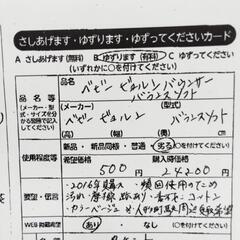 さしあげます・ゆずります・ゆずってくださいカード
A さしあげます(無料) B ゆずります(有料) C ゆずってください
(いずれかに○を付けてください)
品名等
(メーカー・型式・サイズ・色など分かる範囲で記入してください)
品名
ベビービョルン バウンサー
バランスソフト
(メーカー) (型式)
ベビービョルン バランスソフト
使用程度等
新品・新品同様・普通・劣る に○を付けてください
希望価格 購入時価格
500円 24200円
要望・伝言
・2016年購入 ・頻回使用のため
汚れ・摩擦跡あり・
カラーベージュ
WEB掲載希望
あり・なし (○を付けてください)